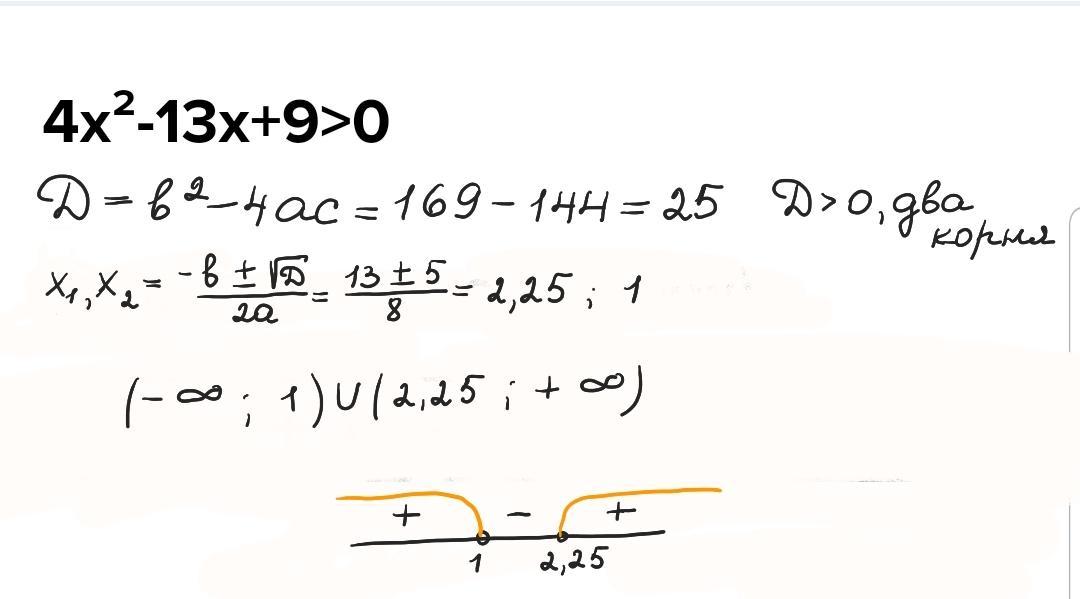 4x²-13x+9>0
D = b² - 4ac = 169 - 144 = 25 D > 0, два
корня
x₁, x₂ = (-b ± √D)/2a = (13 ± 5)/8 = 2,25 ; 1
(-∞ ; 1) ∪ (2,25 ; +∞)
+ - +
1 2,25